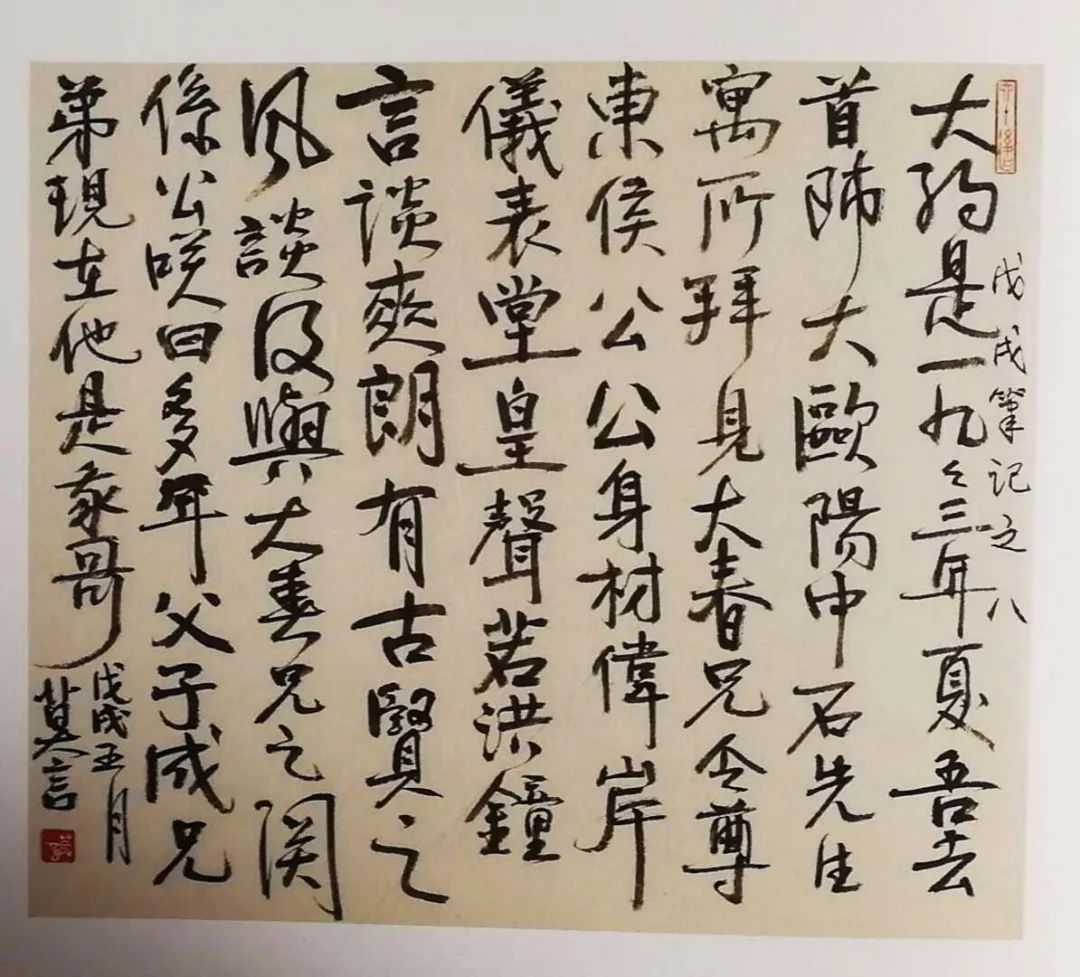 戊戌筆記之八
大約是一九々三年夏吾去
首師大歐陽中石先生
寓所拜見大春兄令尊
東侯公公身材偉岸
儀表堂皇聲若洪鐘
言談爽朗有古賢之
风談及與大春兄之関
係公咲曰多年父子成兄
弟現在他是我哥
戊戌五月
莫言